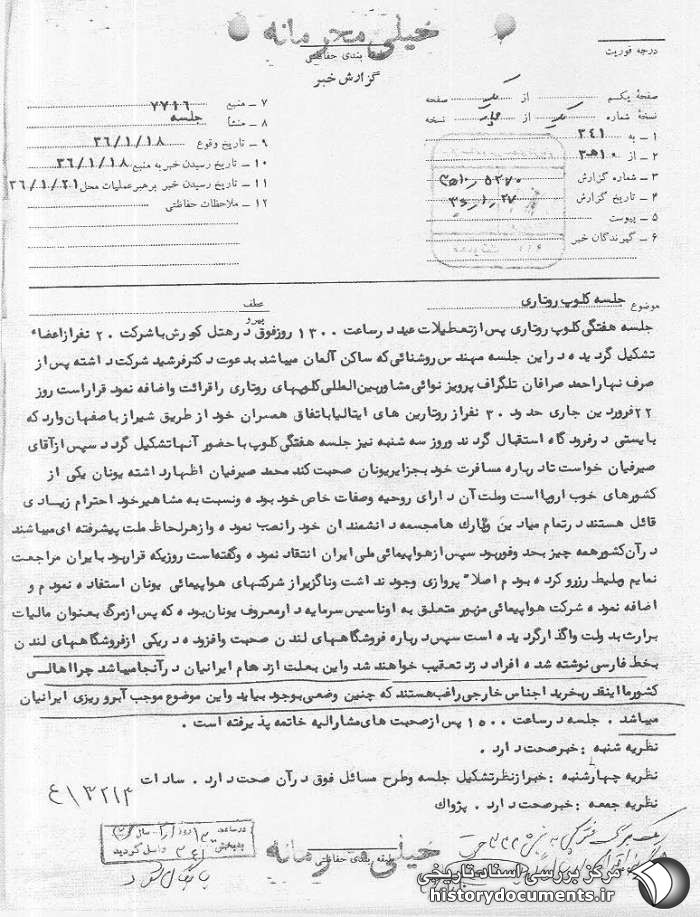 خیلی محرمانه
طبقه بندی حفاظتی
گزارش خبر
درجه فوریت
صفحهٔ یکم از یک صفحه
نسخهٔ شماره یک از چهار نسخه
۱ ـ به ۳۴۱
۲ ـ از ۱۰ﻫ۳
۳ ـ شماره گزارش
۴ ـ تاریخ گزارش
۵ ـ پیوست
۶ ـ گیرندگان خبر
۷ ـ منبع ۷۷۱۶
۸ ـ منشأ جلسه
۹ ـ تاریخ وقوع ۳۶/۱/۱۸
۱۰ ـ تاریخ رسیدن خبر به منبع ۳۶/۱/۱۸
۱۱ ـ تاریخ رسیدن خبر برهبر عملیات محل ۳۶/۱/۲۱
۱۲ ـ ملاحظات حفاظتی
موضوع جلسه کلوپ روتاری
عطف
پیرو
جلسه هفتگی کلوپ روتاری پس ازتعطیلات عید درساعت ۱۳۰۰ روزفوق درهتل کورش باشرکت ۲۰ نفرازاعضاء
تشکیل گردیده دراین جلسه مهندس روشنائی که ساکن آلمان میباشد بدعوت دکترفرشید شرکت داشته پس از
صرف نهاراحمد صرافان تلگراف پرویز نوائی مشاوربین المللی کلوپهای روتاری راقرائت واضافه نمود قراراست روز
۲۲فروردین جاری حدود ۳۰ نفراز روتارین های ایتالیاباتفاق همسران خود ازطریق شیراز باصفهان وارد که
بایستی درفرودگاه استقبال گردند وروز سه شنبه نیز جلسه هفتگی کلوپ باحضور آنهاتشکیل گردد سپس ازآقای
صیرفیان خواست تادرباره مسافرت خود بجزایریونان صحبت کند محمد صیرفیان اظهارداشته یونان یکی از
کشورهای خوب اروپااست وملت آن دارای روحیه وصفات خاص خود بوده ونسبت به مشاهیرخود احترام زیادی
قائل هستند درتمام میادین وپارک هامجسمه دانشمندان خود رانصب نموده وازهرلحاظ ملت پیشرفته ای میباشند
درآن کشورهمه چیز بحد وفوربود سپس ازهواپیمائی ملی ایران انتقاد نموده وگفته است روزیکه قراربود بایران مراجعت
نمایم وبلیط رزرو کرده بودم اصلا" پروازی وجود نداشت وناگزیراز شرکتهای هواپیمائی یونان استفاده نمودم و
اضافه نموده شرکت هواپیمائی مزبور متعلق به اوناسیس سرمایه دارمعروف یونان بوده که پس ازمرگ بعنوان مالیات
برارث بدولت واگذارگردیده است سپس درباره فروشگاههای لندن صحبت وافزوده دریکی ازفروشگاههای لندن
بخط فارسی نوشته شده افراد دزد تعقیب خواهند شد واین بعلت ازدهام ایرانیان درآنجامیباشد چرااهالی
کشورمااینقدربخرید اجناس خارجی راغب هستند که چنین وضعی بوجود بیاید واین موضوع موجب آبروریزی ایرانیان
میباشد . جلسه درساعت ۱۵۰۰ پس ازصحبت های مشارالیه خاتمه پذیرفته است .
نظریه شنبه : خبرصحت دارد .
نظریه چهارشنبه : خبرازنظرتشکیل جلسه وطرح مسائل فوق درآن صحت دارد . سادات
نظریه جمعه : خبرصحت دارد . پژواک
خیلی محرمانه
طبقه بندی حفاظتی
مرکز بررسی اسناد تاریخی
historydocuments.ir